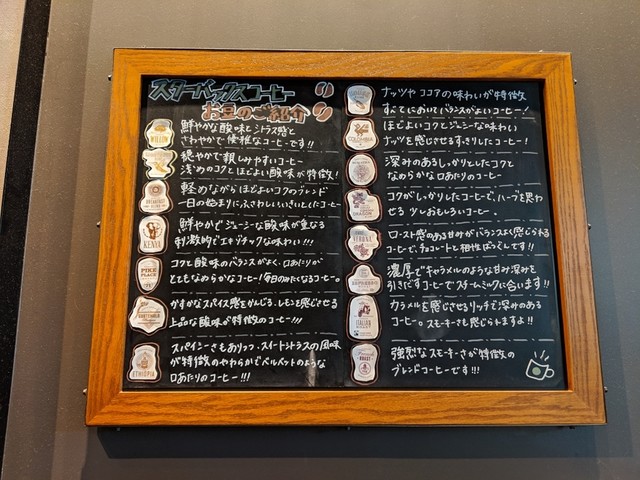 スターバックスコーヒー
お豆のご紹介
WILLOW
鮮やかな酸味とシトラス感と
さわやかで優雅なコーヒーです!!
穏やかで親しみやすいコーヒー
浅めのコクとほどよい酸味が特徴!
BREAKFAST
軽めながらほどよいコクのブレンド
一日の始まりにふさわしいいきいきとしたコーヒー
KENYA
鮮やかでジューシーな酸味が重なる
刺激的でエキゾチックな味わい!!!
PIKE PLACE
コクと酸味のバランスがよく、口あたりが
とてもなめらかなコーヒー!毎日のみたくなるコーヒー
GUATEMALA
かすかなスパイス感をかんじる、レモンを感じさせる
上品な酸味が特徴のコーヒー!!!
ETHIOPIA
スパイシーさもありつつ、スイートシトラスの風味
が特徴のやわらかでベルベットのような
口あたりのコーヒー!!!
ナッツや ココアの味わいが特徴
すべてにおいてバランスがよいコーヒー!
COLOMBIA
ほどよいコクとジューシーな味わい
ナッツを感じさせるすっきりしたコーヒー!
深みのあるしっかりとしたコクと
なめらかな口あたりのコーヒー
DRAGON
コクがしっかりしたコーヒーで、ハーブを思わ
せる ツヒおもしろいコーヒー。
VERONA
ロースト感のある甘みがバランスよく感じられる
コーヒーで、チョコレートと相性ばっぐんです!!
ESPRESSO
濃厚でキャラメルのような甘みと深みを
引きだすコーヒーで スチームミルクに合います!!
ITALIAN
カラメルを感じさせるリッチで深みのある
コーヒー。スモーキーさも感じられますよ!!
ROAST
強烈なスモーキーさが特徴の
ブレンドコーヒーです!!!